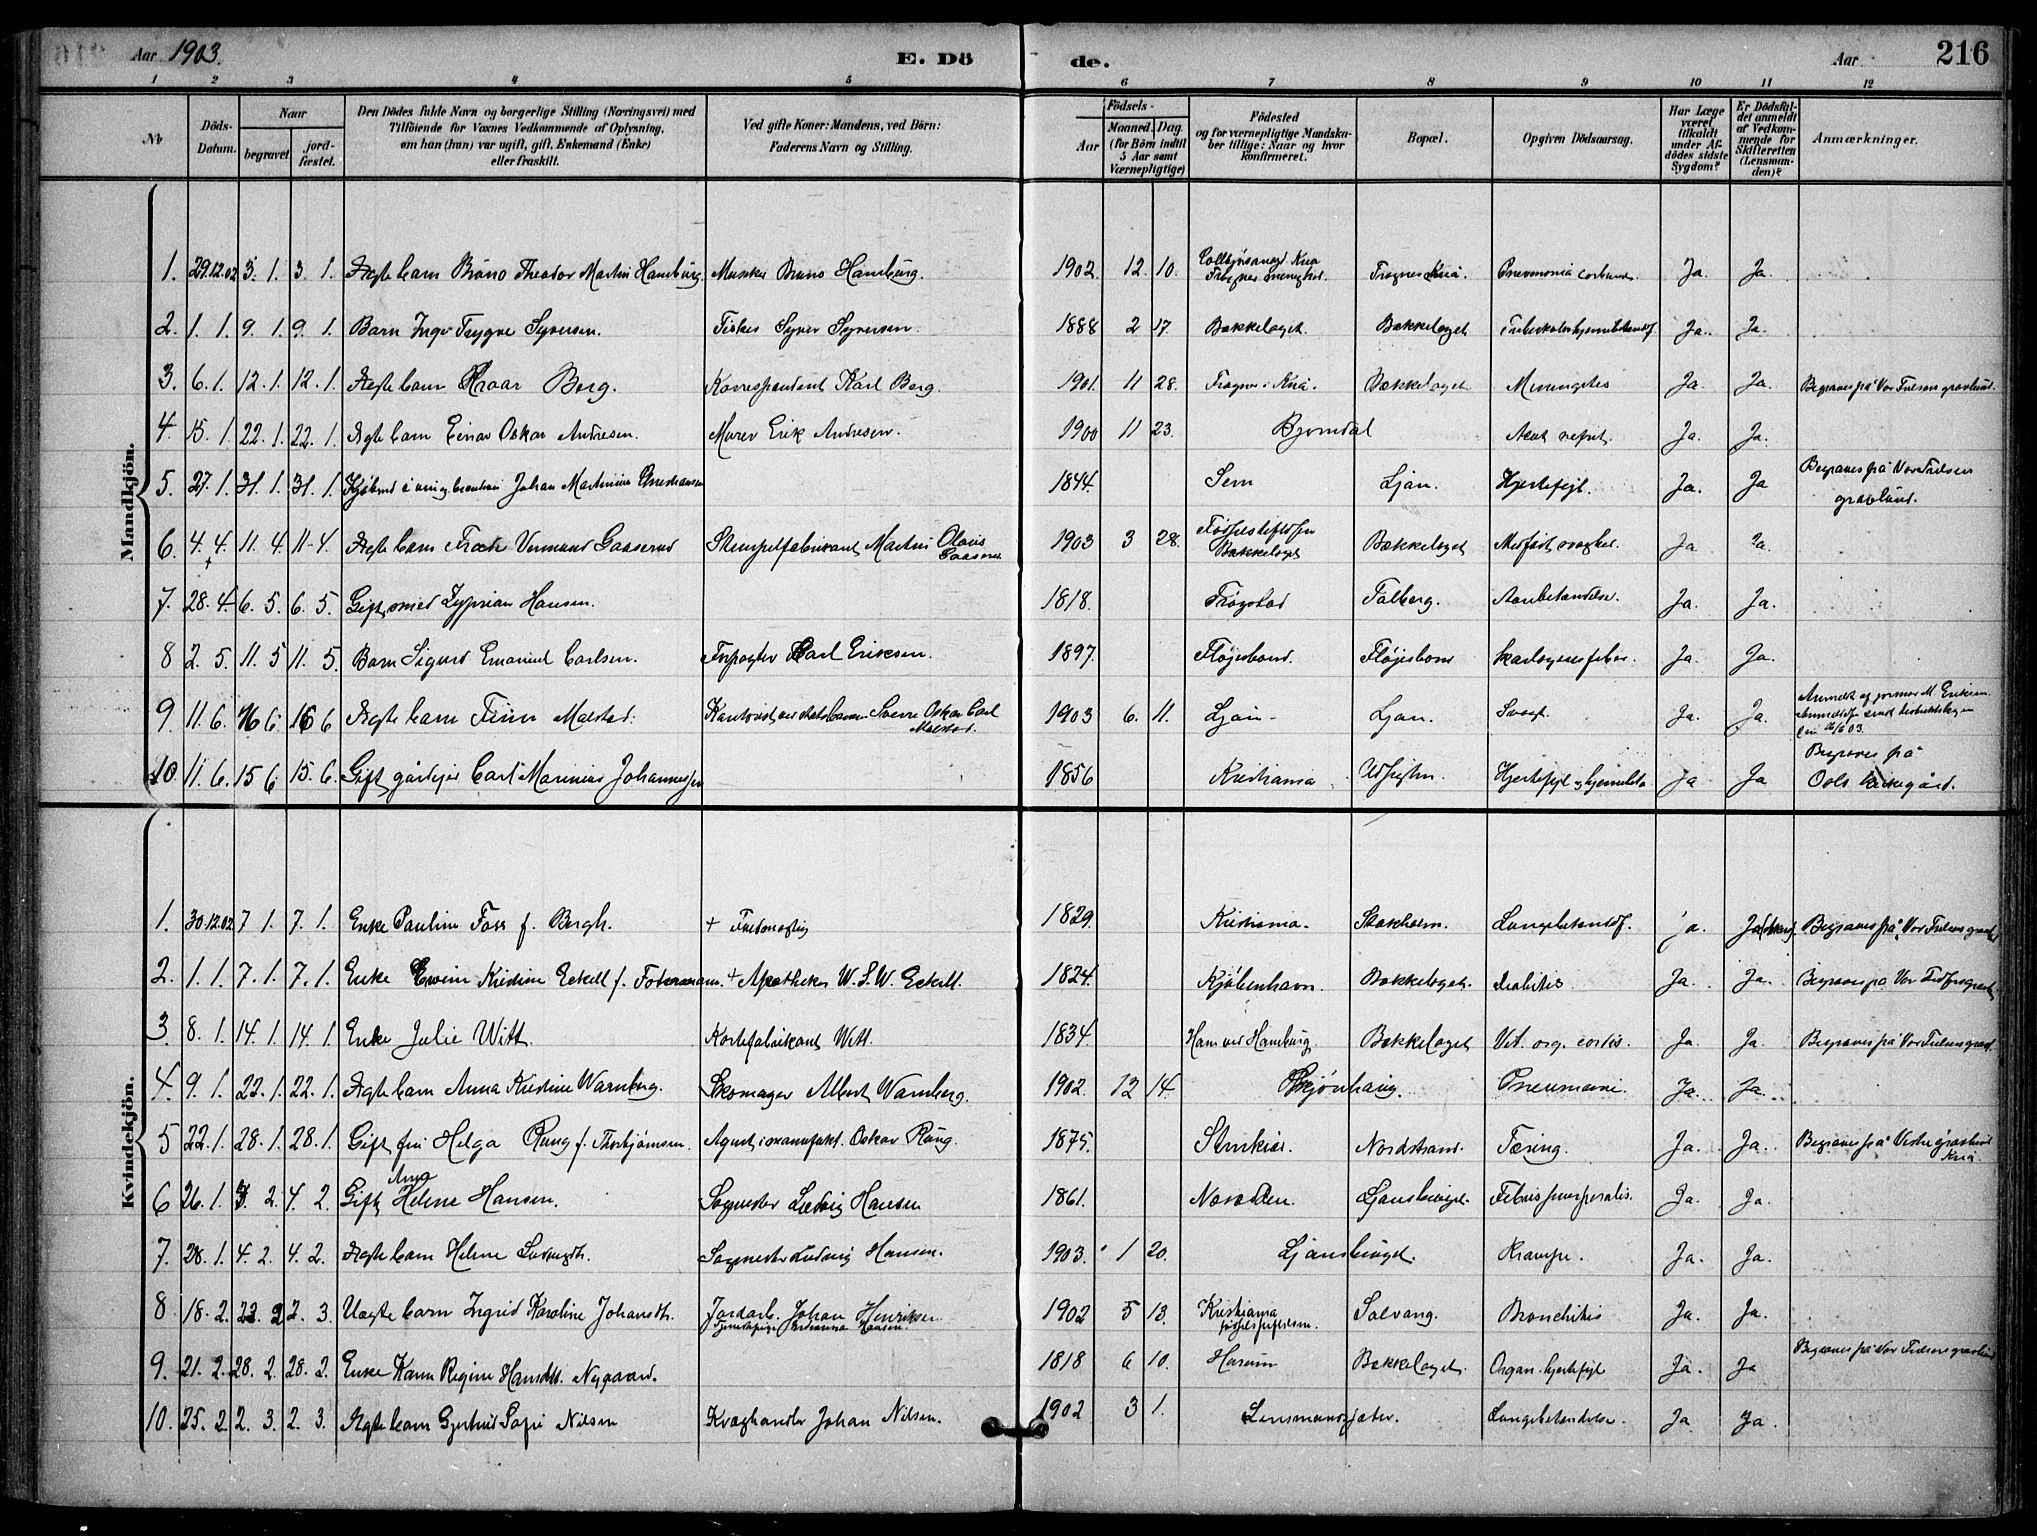 Aar 1903.
E. Dö
de.
Aar
216
1 2 3 4 5 6 7 8 9 10 11 12
No
Döds-Datum.
Naar
begravet.
jord-fæstet.
Den Dödes fulde Navn og borgerlige Stilling (Næringsvei) med
Tilföiende for Voxnes Vedkommende af Oplysning,
om han (hun) var ugift, gift, Enkemand (Enke)
eller fraskilt.
Ved gifte Koner: Mandens, ved Börn:
Faderens Navn og Stilling.
Födsels-
Aar
Maaned. Dag.
(for Börn indtil
5 Aar samt
Værnepligtige)
Födested
og for værnepligtige Mandska-
ber tillige: Naar og hvor
konfirmeret.
Bopæl.
Opgiven Dödsaarsag.
Har Læge
været
tilkaldt
under Af-
dödes sidste
Sygdom?
Er Dödsfal-
det anmeldt
af Vedkom-
mende for
Skifteretten
(Lensman-
den)?
Anmærkninger.
Mandkjön.
1. 29.12.02 3. 1. 3. 1. Ægte barn Bruno Theodor Martin Hamburg. Musiker Bruno Hamburg. 1902. 12 10. Frogner menighed. Frogner Kria. Pneumonia Ja Ja.
2. 1. 1. 9. 1. 9. 1. Barn Inge Trygve Syversen. Fisker Syver Syversen. 1888 2 17. Bækkelaget. Bækkelaget Ja. Ja.
3. 6. 1. 12. 1. 12. 1. Ægte barn Roar Berg. Korrespondent Karl Berg. 1901. 11 28. Frogner i Kria. Bækkelaget Meningitis Ja. Ja. Begraves på Vor Frelsers gravlund.
4. 15. 1. 22. 1. 22. 1. Ægte barn Einar Oskar Andresen. Murer Erik Andresen. 1900 11 23. Bjørndal Acut nefrit. Ja. Ja.
5. 27. 1. 31. 1. 31. 1. Johan Martinius Christiansen 1844. Sem Ljan. Hjertefejl. Ja. Ja Begraves på Vor Frelsers
gravlund.
6. 4. 4. 11. 4. 11. 4. Ægte barn Frode Vermund Gaaserud Stempelfabrikant Martin Olaus
Gaaserud 1903 3 28. Fødselsstiftelsen
Bækkelaget Bækkelaget Medfødt svaghed. Ja Ja.
7. 28. 4. 6. 5. 6. 5. Gift smed Zyprian Hansen. 1818. Trøgstad Talberg. Aarebetændelse. Ja. Ja.
8 2. 5. 11. 5 11. 5. Barn Sigurd Emanuel Carlsen. Forpagter Carl Eriksen. 1897. Fløjsbonn. Fløjsbonn Skarlagensfeber. Ja. Ja.
9. 11. 6. 16 6. 16 6 Ægte barn Finn Malstad. Sverre Oskar Carl
Malstad. 1903 6. 11. Ljan Ljan. Svagh. Ja. Ja.
10. 11. 6. 15 6 15. 6. Gift gårdejer Carl Marinius Johannessen 1856 Kristiania Udsigten. Hjertefejl Ja Ja Begraves på
Oslo kirkegård.
Kvindekjön.
1. 30.12.02 7 1. 7. 1. Enke Pauline Foss f. Bergh. + Fuldmægtig 1829. Kristiania. Stokholm. Lungebetændelse. Ja. Begraves på Vor Frelsers gravlund
2. 1. 1. 7. 1. 7. 1. Enke Kirstine Eckell f. + Apotheker W. S. W. Eckell. 1824. Kjøbenhavn. Bækkelaget. Diabetis Ja. Ja. Begraves på Vor Frelsers gravlund
3. 8. 1. 14. 1. 14. 1. Enke Julie Witt. Kortefabrikant Witt. 1834. Ham ved Hamburg. Bækkelaget Vit. org. cordis. Ja. Ja. Begraves på Vor Frelsers gravl.
4. 9. 1. 22. 1. 22. 1. Ægte barn Anna Kristine Warnberg. Skomager Albert Warnberg. 1902. 12 14. Skjønhaug. Pneumoni. Ja. Ja.
5 22. 1. 28. 1. 28. 1. Gift fru Helga Rung f. Thorbjørnsen. Agent i manufakt. Oskar Rung. 1875. Stenkier. Nordstrand. Tæring. Ja. Ja. Begraves på Vestre gravlund
Kria.
6 26. 1. 4. 2. 4. 2. Gift Anna Helene Hansen. Sagmester Ludvig Hansen 1861. Næsodden. Ljansbruget. Febris puerperalis. Ja. Ja.
7. 28. 1. 4. 2. 4. 2. Ægte barn Helene Ludvigdtr. Sagmester Ludvig Hansen. 1903. 1 20. Ljansbruget. Krampe. Ja. Ja.
8 18. 2. 22. 2 2. 3. Uægte barn Ingrid Karoline Johansdtr. Jordarb. Johan Henriksen.
Tjenestepige Kristianna Hansen. 1902 5 13. Kristiania
fødselsstiftelsen. Solvang. Bronchitis Ja. Ja.
9. 21. 2. 28. 2. 28. 2. Enke Karen Regine Hansdtr. Nygaard. 1818 6 10. Hurum Bækkelaget. Organ. hjertefejl Ja. Ja Begraves på Vor Frelsers gravlund
10. 25. 2. 2. 3. 2. 3. Ægte barn Gjertrud Sofie Nilsen Kvæghandler Johan Nilsen. 1902 3 1. Lensmandsjøter. Lungebetændelse. Ja Ja.